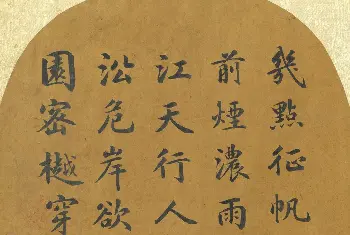 幾點征帆
前煙濃雨
江天行人
㳂危岸欲
園密樾穿